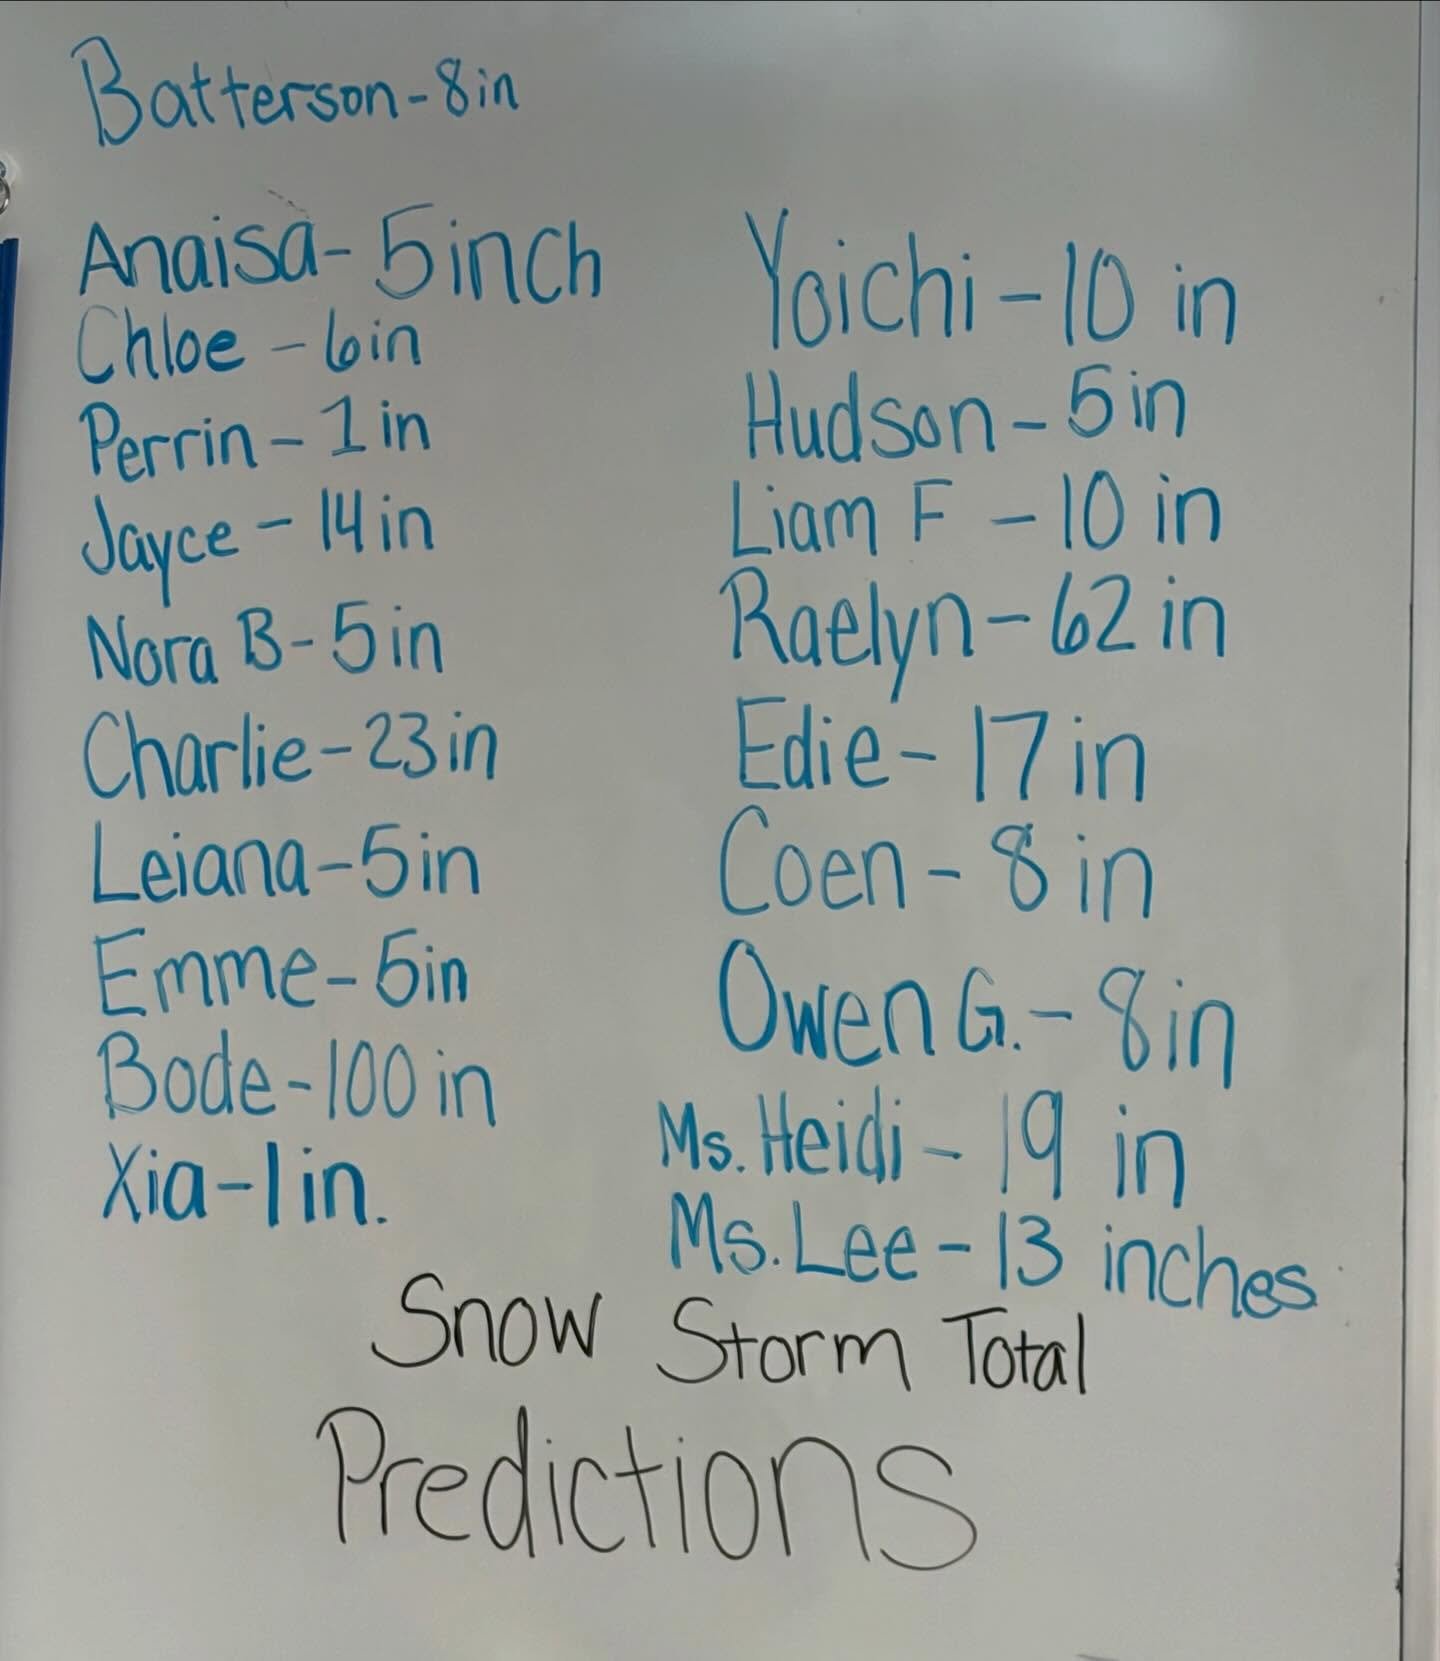 Batterson - 8in
Anaisa - 5inch
Chloe - 6in
Perrin - 1 in
Jayce - 14in
Nora B - 5in
Charlie - 23in
Leiana - 5in
Emme - 5in
Bode - 100 in
Xia - 1in.
Yoichi - 10 in
Hudson - 5 in
Liam F - 10 in
Raelyn - 62 in
Edie - 17 in
Coen - 8 in
Owen G. - 8in
Ms. Heidi - 19 in
Ms. Lee - 13 inches
Snow Storm Total
Predictions